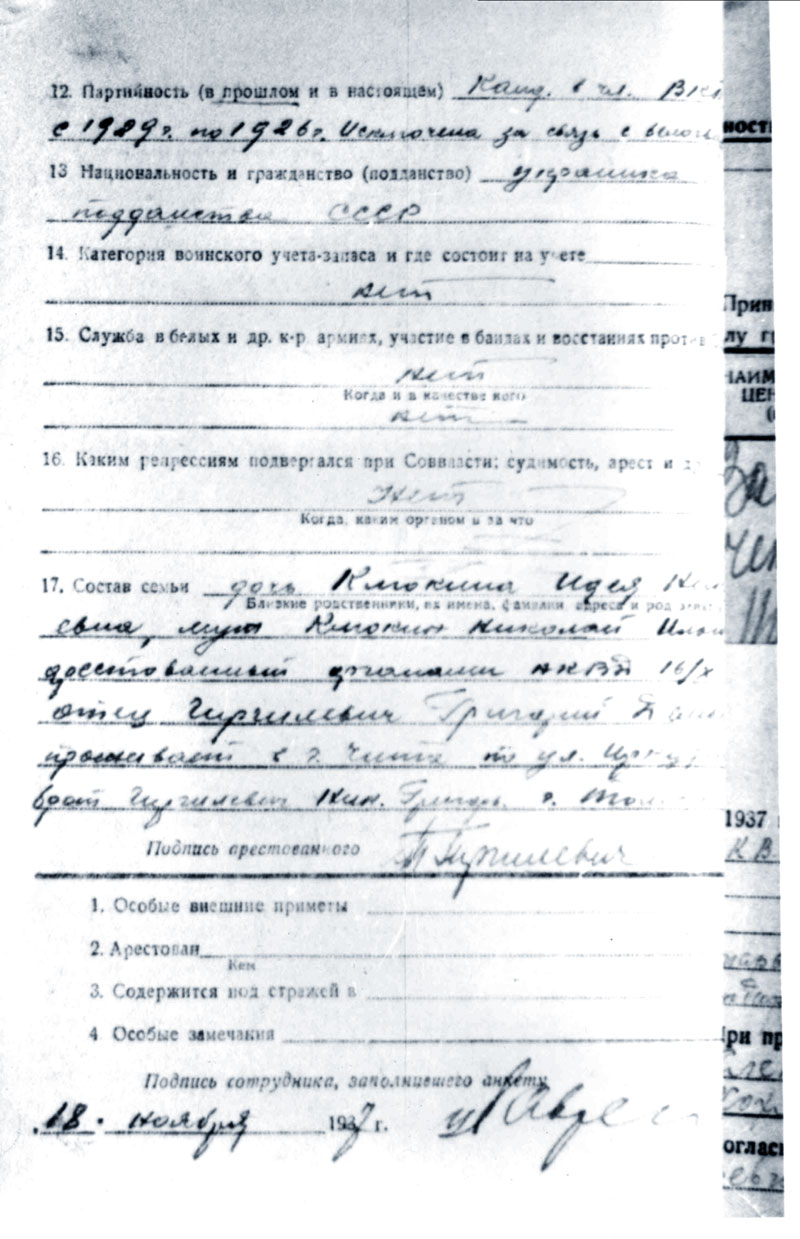 12. Партийность (в прошлом и в настоящем) Канд. в чл.
с 192 г. по 1926 г. Исключена за связь с
13 Национальность и гражданство (подданство) украинка
подданства СССР
14. Категория воинского учета-запаса и где состоит на учете
нет
15. Служба в белых и др. к-р. армиях, участие в бандах и восстаниях против
нет
Когда и в качестве кого
нет
16. Каким репрессиям подвергался при Соввласти: судимость, арест и
Нет
Когда, каким органом и за что
17. Состав семьи дочь Клюкина Идея
Близкие родственники, их имена, фамилии, адреса и род
евна, муж Клюкин Николай
арестованный органами НКВД 16/X
отец Гиргилевич Григорий
проживает в г. Чита по ул.
брат Гиргилевич Григорь. г.
Подпись арестованного Гиргилевич
1. Особые внешние приметы
2. Арестован
Кем
3. Содержится под стражей в
4. Особые замечания
Подпись сотрудника, заполнившего анкету
18. ноября 1937 г.
ност
Прин
лу г
НАИМ
ЦЕН
За
1937
КВ
При пр
оглас